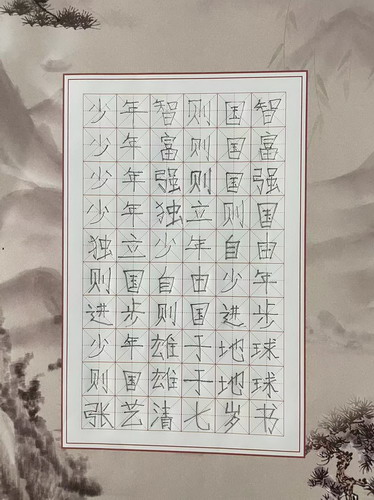 少年智则国智
少年富则国富
少年强则国强
少年独立则国
独立少年自由
则国自由少年
进步则国进步
少年雄于地球
则国雄于地球
张艺清七岁书